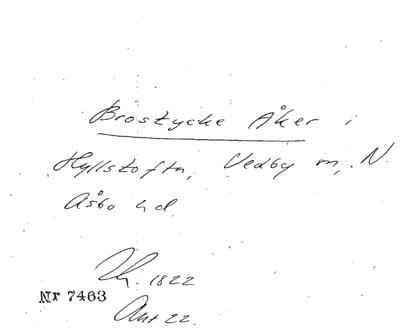 Brostycke Åker i
Hyllstofta, Vedby m, N.
Åsbo hd.
Th. 1822
Nr 7463
Akt 22.